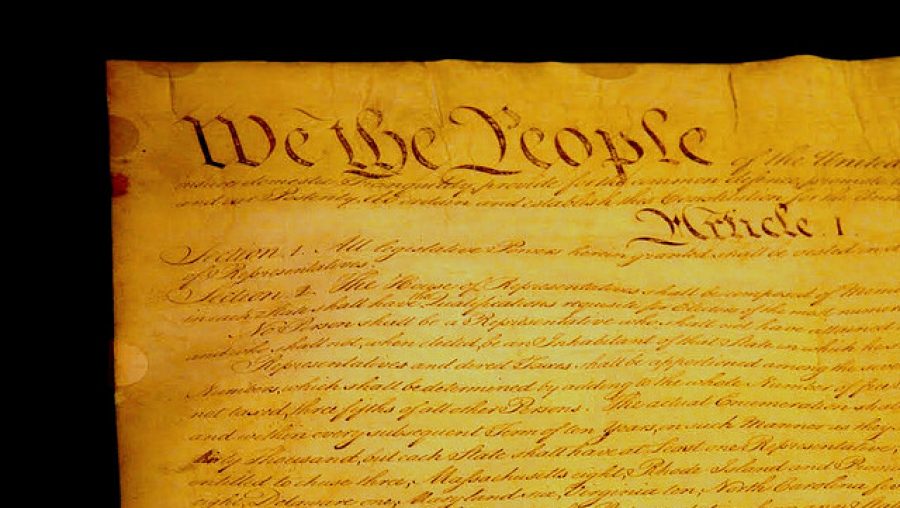 We the People of the United
insure domestic Tranquility, provide for the common defence, promote
and our Posterity, do ordain and establish this Constitution for the United
Article. I.
Section. 1. All legislative Powers herein granted shall be vested in a
of Representatives.
Section. 2. The House of Representatives shall be composed of Mem
in each State shall have the Qualifications requisite for Electors of the most numer
No Person shall be a Representative who shall not have attained
and who shall not, when elected, be an Inhabitant of that State in which he s
Representatives and direct Taxes shall be apportioned among the sev
Numbers, which shall be determined by adding to the whole Number of free
not taxed, three fifths of all other Persons. The actual Enumeration shal
and within every subsequent Term of ten Years, in such Manner as they
thirty Thousand, but each State shall have at Least one Representative,
entitled to chuse three, Massachusetts eight, Rhode Island and Provid
eight, Delaware one, Maryland six, Virginia ten, North Carolina five